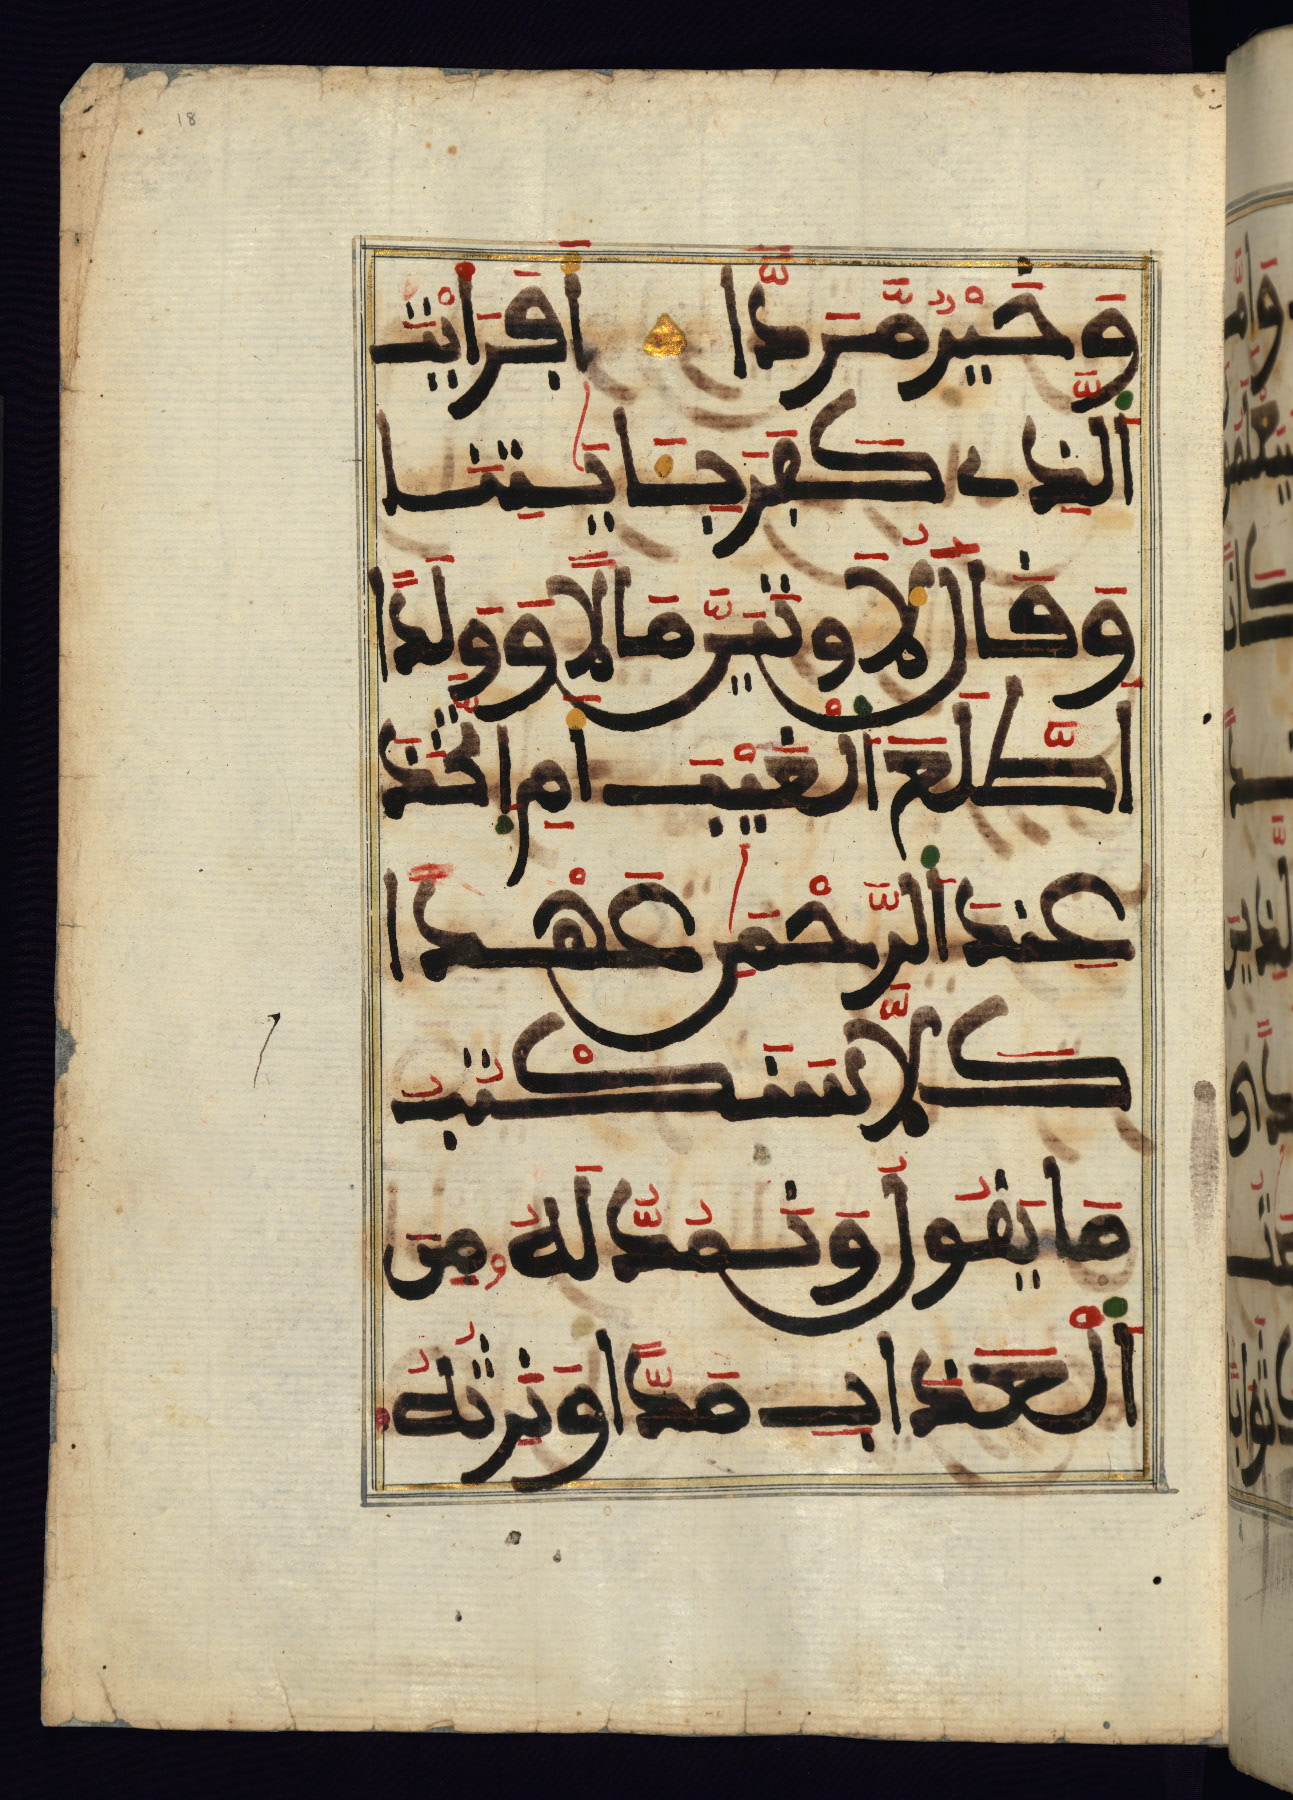 18
وَخَيْرٌ مَّرَدًّا أَفَرَأَيْتَ
ٱلَّذِى كَفَرَ بِـَٔايَٰتِنَا
وَقَالَ لَأُوتَيَنَّ مَالًا وَوَلَدًا
ٱطَّلَعَ ٱلْغَيْبَ أَمِ ٱتَّخَذَ
عِندَ ٱلرَّحْمَٰنِ عَهْدًا
كَلَّا سَنَكْتُبُ
مَا يَقُولُ وَنَمُدُّ لَهُۥ مِنَ
ٱلْعَذَابِ مَدًّا وَنَرِثُهُۥ